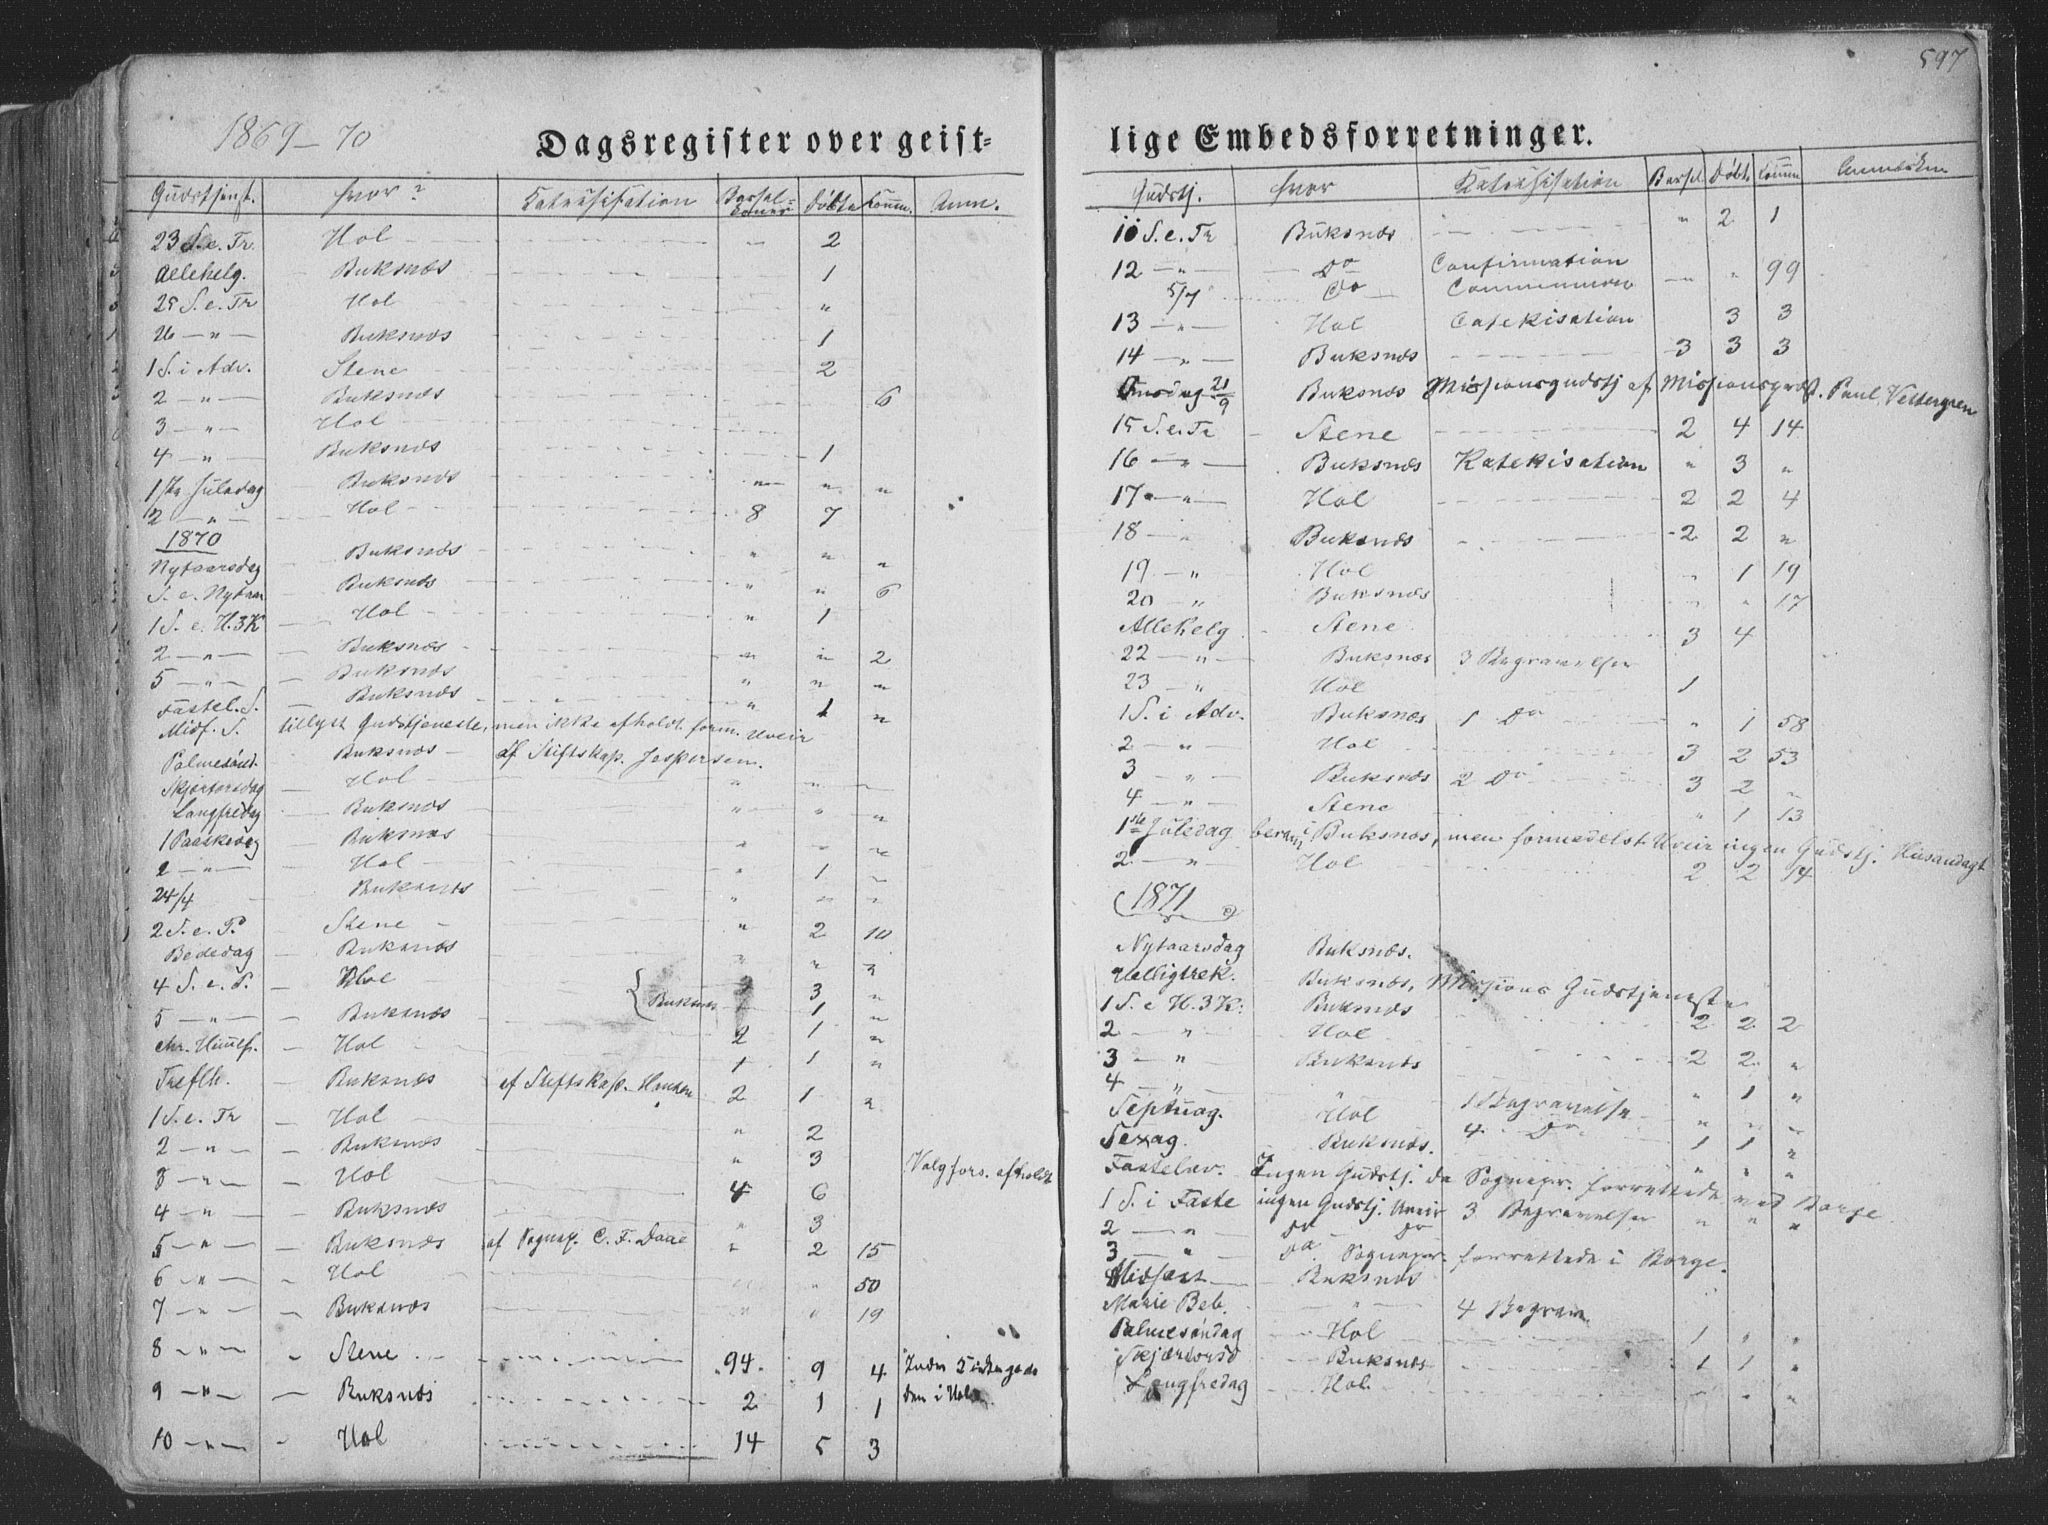 597
1869-70
Dagsregister over geist-
Gudstjenst. hvor? Katekisation Barsel-koner Døbte Comm. Anm.
23 S. e. Tr. Hol " 2
Allehelg. Buksnæs 1
25 S. e. Tr Hol "
26 " Buksnæs 1
1 S. i Adv. Stene 2
2 " Buksnæs 6
3 " Hol
4 " Buksnæs 1
1ste Juledag Buksnæs " " "
2 " Hol 8 7
1870
Nytaarsdag Buksnæs " " "
S. e. Nytaar Buksnæs " " 6
1 S. e. H. 3 K Hol " 1
2 " Buksnæs " " 2
5 " Buksnæs " " "
Fastel. S. Buksnæs " 1 "
Midf. S. tillyst Gudstjeneste, men ikke afholdt form. Uveir
Palmesønd. Buksnæs af Stiftskap. Jespersen.
Skjærtorsdag Hol " " "
Langfredag Buksnæs " " "
1 Paaskedag Buksnæs " " "
2 " Hol " 1 "
24/4 Buksnæs " " "
2 S. e. P. Stene " 2 10
Bededag Buksnæs " " "
4 S. e. P. Hol 3 "
5 " Buksnæs { Buksnæs 1 "
Chr. Himlf. Hol 2 1 "
1 1 "
Trefh. Buksnæs af Stiftskap. Hansen 2 1 "
1 S. e. Tr Hol
2 " Buksnæs " 2
3 " Hol " 3 Valgfors. afholdt
4 " Buksnæs 4 6
" 3
5 " Buksnæs af Sognep. C. F. Daae " 2 15
6 " Hol " 50
7 " Buksnæs " " 19
8 " Stene 94. 9 4
9 " Buksnæs 2 1 1 den i Hol
10 " Hol 14 5 3
lige Embedsforretninger.
Gudstj. hvor Katekisation Barsel. Døbt. Comm. Anmærkn
10 S. e. Tr Buksnæs " 2 1
12 " Do Confirmation " 99
5/7 Do Communion
13 " Hol Catekisation 3 3
14 " Buksnæs 3 3 3
Onsdag 21/9 Buksnæs Missionsgudstj af Missionspræst. Paul Vettergren
15 S. e. Tr Stene 2 4 14
16 " Buksnæs Katekisation " 3 "
17 " Hol 2 2 4
18 " Buksnæs 2 2 "
19 " Hol " 1 19
20 " Buksnæs " " 17
Allehelg Stene 3 4
22 " Buksnæs 3 Begravelser
23 " Hol 1
1 S. i Adv. Buksnæs 1 Do " 1 58
2 " Hol 3 2 53
3 " Buksnæs 2 Do 3 2 "
4 " Stene " 1 13
1ste Juledag i Buksnæs, men formedelst Uveir ingen Gudstj. Husandagt
2 " Hol 2 2 14
1871
Nytaarsdag Buksnæs.
Helligtrek. Buksnæs, Missions Gudstjeneste
1 S. e H. 3 K: Buksnæs
2 " Hol 2 2 2
3 " Buksnæs 2 2 "
4 " " 1 "
Septuag. Hol 1 Begravelse " " "
Sexag. Buksnæs. 4 Do 1 1 "
Fastelav. Ingen Gudstj. da Sognepr. forrettede ved Borge
1 S. i Faste ingen Gudstj. Uveir 3 Begravelser " " "
2 " Do Do
3 " Do Sognepr. forrettede i Borge.
Midfast Buksnæs
Marie Beb. " 4 Begrav.
Palmesøndag Hol 1 " "
Skjærtorsd Buksnæs 1 1 "
Langfredag Hol " "